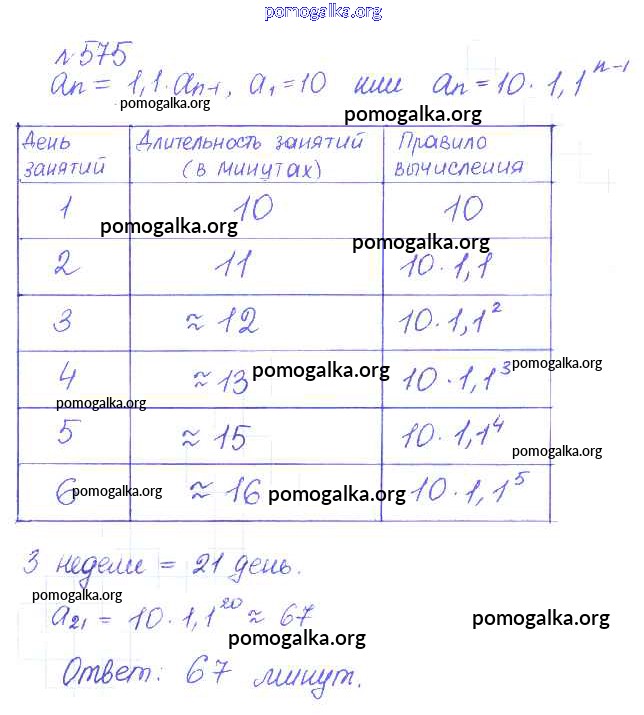 pomogalka.org
№575
an = 1,1·an-1, a1=10 или an=10·1,1^n-1
pomogalka.org
pomogalka.org
День занятий | Длительность занятий (в минутах) | Правило вычисления
1 | 10 | 10
pomogalka.org
pomogalka.org
2 | 11 | 10·1,1
3 | ≈12 | 10·1,1^2
4 | ≈13 | 10·1,1^3
pomogalka.org
pomogalka.org
pomogalka.org
5 | ≈15 | 10·1,1^4
pomogalka.org
6 | ≈16 | 10·1,1^5
pomogalka.org
pomogalka.org
3 недели = 21 день.
pomogalka.org
a21 = 10·1,1^20 ≈ 67
pomogalka.org
pomogalka.org
Ответ: 67 минут.